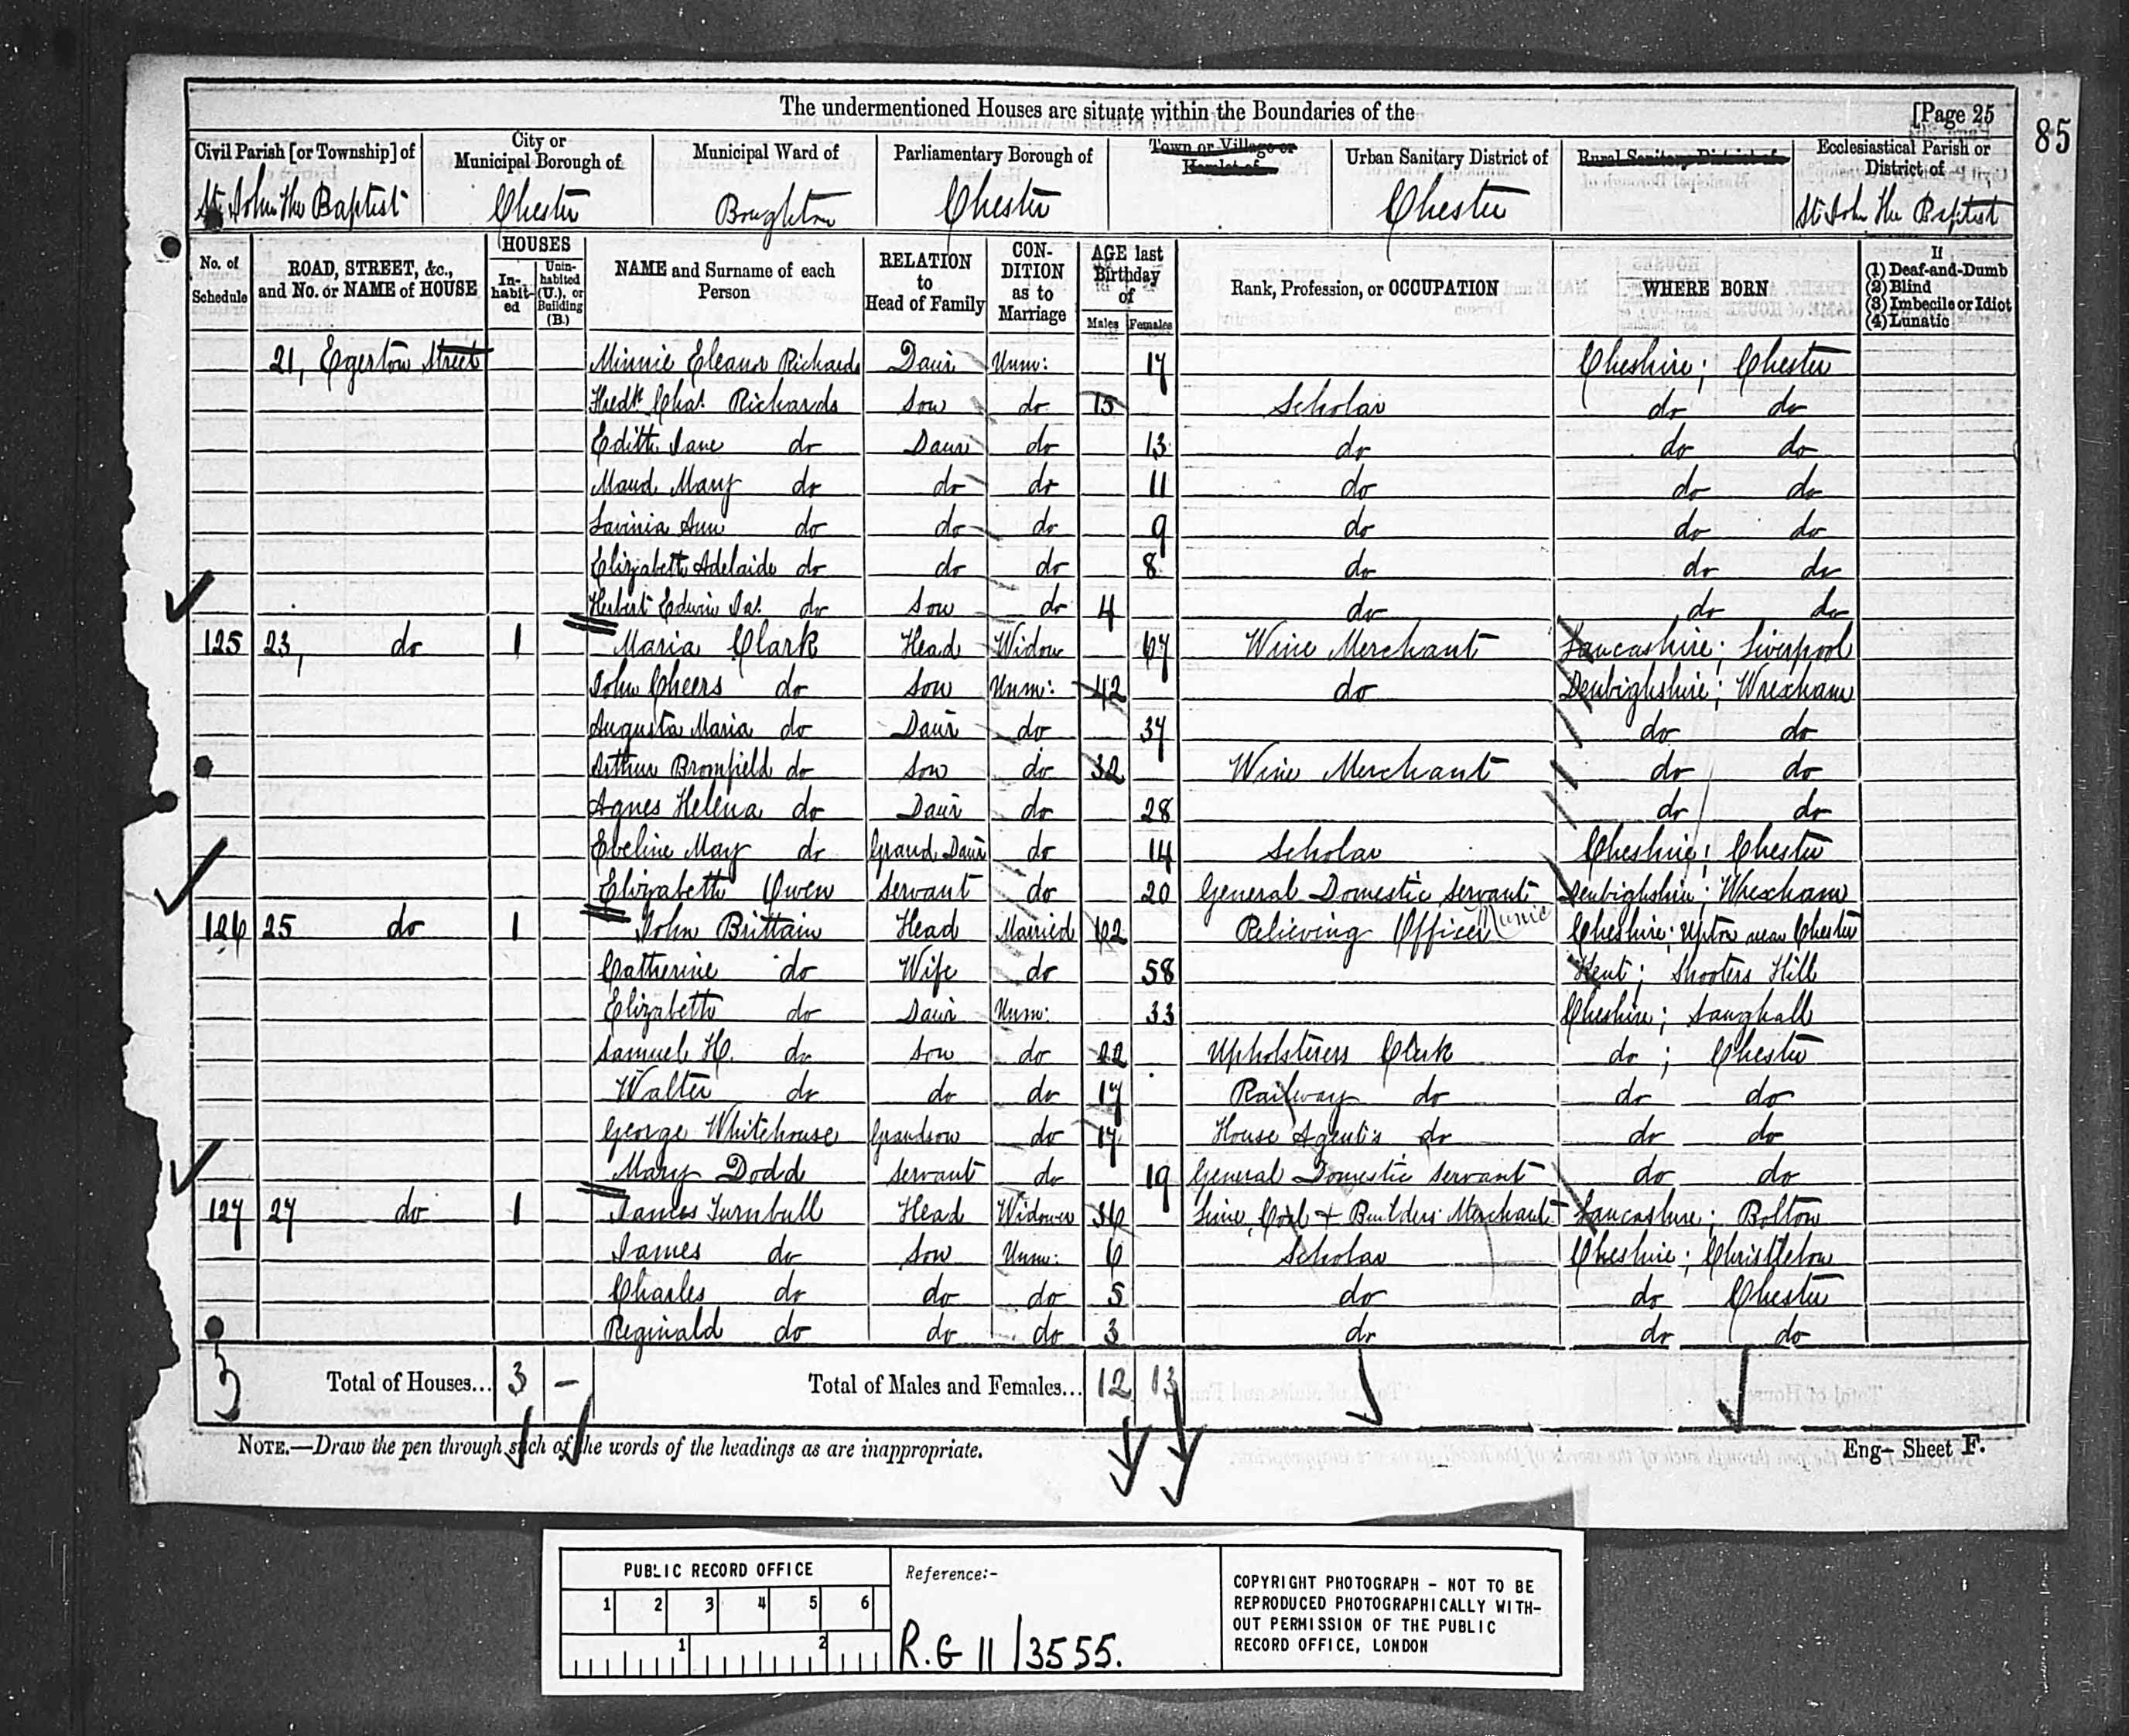 The undermentioned Houses are situate within the Boundaries of the [Page 25
85
Civil Parish [or Township] of City or Municipal Borough of Municipal Ward of Parliamentary Borough of Town or Village or Hamlet of Urban Sanitary District of Rural Sanitary District of Ecclesiastical Parish or District of
St. John the Baptist Chester Boughton Chester Chester St John the Baptist
No. of Schedule ROAD, STREET, &c., and No. or NAME of HOUSE HOUSES In-habit-ed Unin-habited (U.), or Building (B.) NAME and Surname of each Person RELATION to Head of Family CON-DITION as to Marriage AGE last Birthday of Males Females Rank, Profession, or OCCUPATION WHERE BORN If (1) Deaf-and-Dumb (2) Blind (3) Imbecile or Idiot (4) Lunatic
21, Egerton Street Minnie Eleanor Richards Daur Unm: 17 Cheshire; Chester
Fredk Chas. Richards Son do 15 Scholar do do
Edith Jane do Daur do 13 do do do
Maud Mary do do do 11 do do do
Lavinia Ann do do do 9 do do do
Elizabeth Adelaide do do do 8 do do do
Herbert Edwin Jas. do Son do 4 do do do
125 23, do 1 Maria Clark Head Widow 67 Wine Merchant Lancashire; Liverpool
John Cheers do Son Unm: 42 do Denbighshire; Wrexham
Augusta Maria do Daur do 37 do do
Arthur Bromfield do Son do 32 Wine Merchant do do
Agnes Helena do Daur do 28 do do
Eveline May do Grand Daur do 14 Scholar Cheshire; Chester
Elizabeth Owen Servant do 20 General Domestic Servant Denbighshire; Wrexham
126 25 do 1 John Brittain Head Married 62 Relieving Officer Munic Cheshire; Upton near Chester
Catherine do Wife do 58 Kent; Shooters Hill
Elizabeth do Daur Unm: 33 Cheshire; Saughall
Samuel H. do Son do 22 Upholsterers Clerk do; Chester
Walter do do do 17 Railway do do do
George Whitehouse Grandson do 17 House Agent's do do do
Mary Dodd Servant do 19 General Domestic Servant do do
127 27 do 1 James Turnbull Head Widower 36 Lime, Coal & Builders Merchant Lancashire; Bolton
James do Son Unm: 6 Scholar Cheshire; Christleton
Charles do do do 5 do do Chester
Reginald do do do 3 do do do
Total of Houses... 3 – Total of Males and Females... 12 13
NOTE.—Draw the pen through such of the words of the headings as are inappropriate. Eng– Sheet F.
PUBLIC RECORD OFFICE
1 2 3 4 5 6
1 2
Reference:-
R.G 11/3555.
COPYRIGHT PHOTOGRAPH – NOT TO BE
REPRODUCED PHOTOGRAPHICALLY WITH-
OUT PERMISSION OF THE PUBLIC
RECORD OFFICE, LONDON